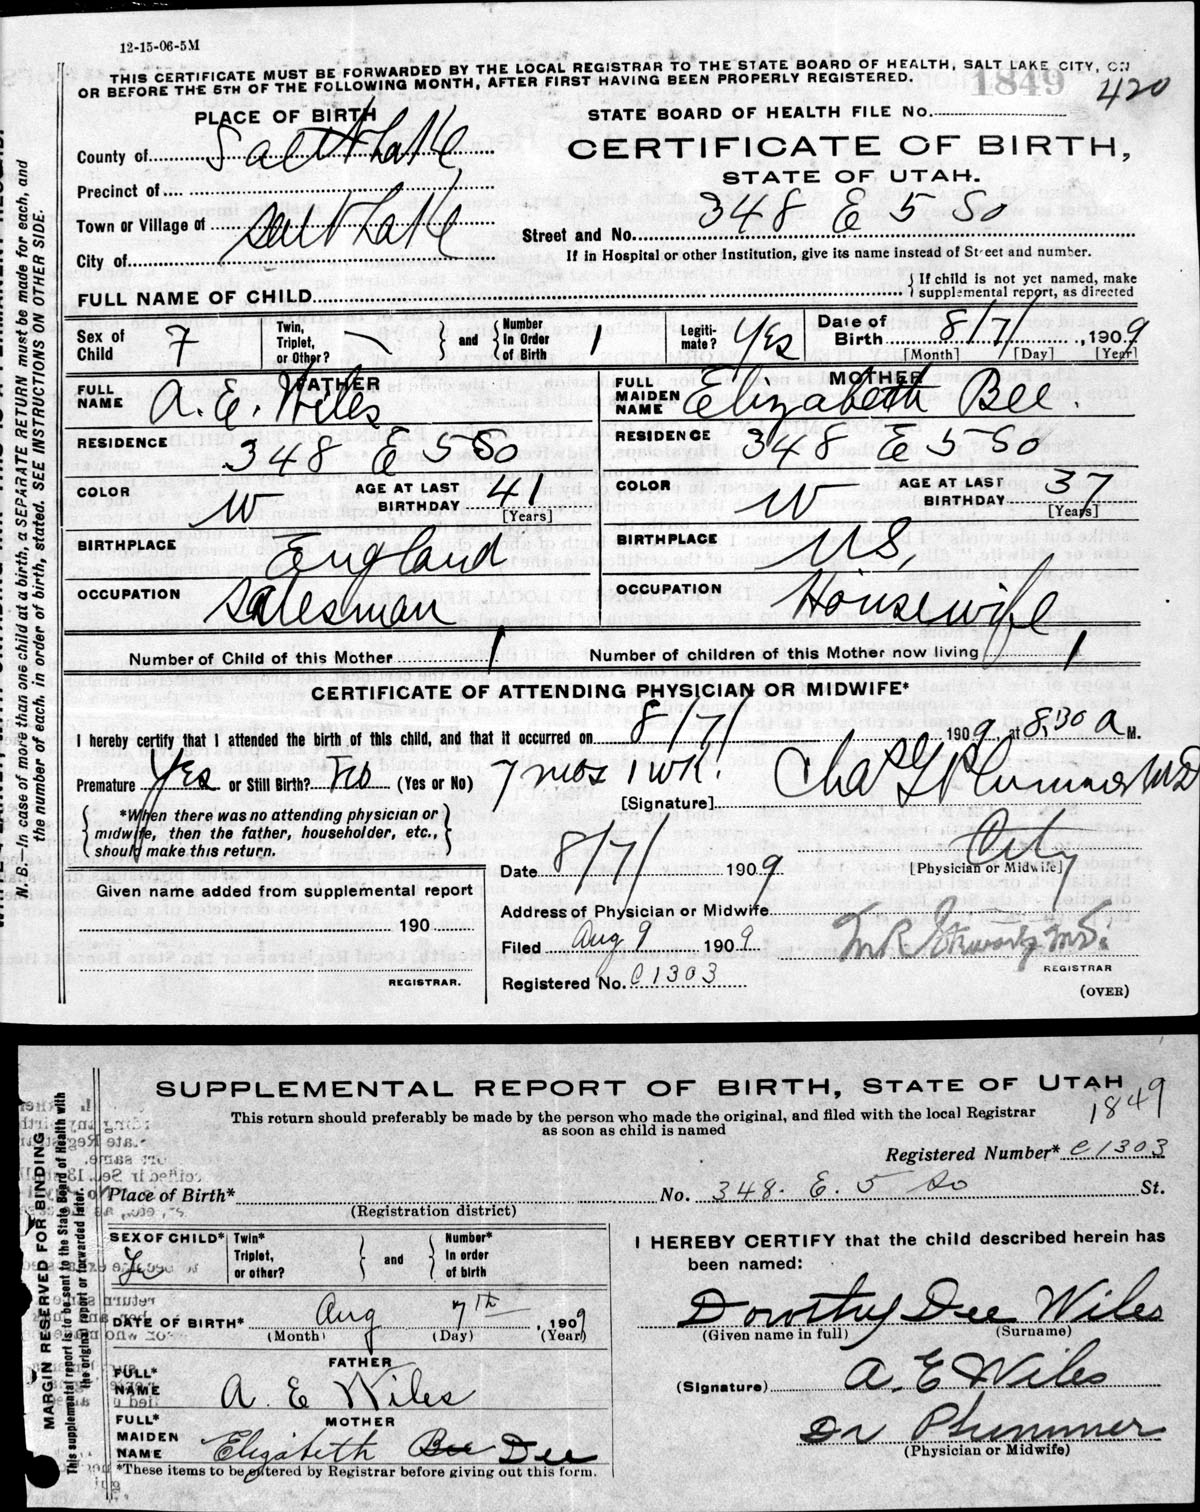 12-15-06-5M
THIS CERTIFICATE MUST BE FORWARDED BY THE LOCAL REGISTRAR TO THE STATE BOARD OF HEALTH, SALT LAKE CITY, ON
OR BEFORE THE 5TH OF THE FOLLOWING MONTH, AFTER FIRST HAVING BEEN PROPERLY REGISTERED.
1849
420
PLACE OF BIRTH
STATE BOARD OF HEALTH FILE No.
County of Salt Lake
CERTIFICATE OF BIRTH,
STATE OF UTAH.
Precinct of
Town or Village of Salt Lake
Street and No. 348 E 5 So
City of
If in Hospital or other Institution, give its name instead of Street and number.
FULL NAME OF CHILD
If child is not yet named, make
supplemental report, as directed
Sex of Child F
Twin, Triplet, or Other?
and
Number In Order of Birth 1
Legitimate? Yes
Date of Birth 8/7/, 1909
[Month] [Day] [Year]
FATHER
FULL NAME A. E. Wiles
MOTHER
FULL MAIDEN NAME Elizabeth Bee.
RESIDENCE 348 E 5 So
RESIDENCE 348 E 5 So
COLOR W
AGE AT LAST BIRTHDAY 41 [Years]
COLOR W
AGE AT LAST BIRTHDAY 37 [Years]
BIRTHPLACE England
BIRTHPLACE U.S.
OCCUPATION Salesman
OCCUPATION Housewife
Number of Child of this Mother 1
Number of children of this Mother now living 1
CERTIFICATE OF ATTENDING PHYSICIAN OR MIDWIFE*
I hereby certify that I attended the birth of this child, and that it occurred on 8/7/ 1909, at 8:30 a M.
Premature Yes or Still Birth? (Yes or No) 7 mos 1 wk.
[Signature] Chas G Plummer MD
*When there was no attending physician or
midwife, then the father, householder, etc.,
should make this return.
Date 8/7/ 1909
City
[Physician or Midwife]
Given name added from supplemental report
190
REGISTRAR.
Address of Physician or Midwife
Filed Aug 9 1909
REGISTRAR
Registered No. C1303
(OVER)
N. B.—In case of more than one child at a birth, a SEPARATE RETURN must be made for each, and
the number of each, in order of birth, stated. SEE INSTRUCTIONS ON OTHER SIDE.
SUPPLEMENTAL REPORT OF BIRTH, STATE OF UTAH
1849
This return should preferably be made by the person who made the original, and filed with the local Registrar
as soon as child is named
Registered Number* C1303
Place of Birth*
No. 348. E. 5 So St.
(Registration district)
SEX OF CHILD*
Twin* Triplet, or other?
and
Number* In order of birth
I HEREBY CERTIFY that the child described herein has
been named:
DATE OF BIRTH* Aug 7th, 1909
(Month) (Day) (Year)
Dorothy Dee Wiles
(Given name in full) (Surname)
FATHER
FULL* NAME A. E Wiles
(Signature) A. E Wiles
MOTHER
FULL* MAIDEN NAME Elizabeth Bee Dee
Dr Plummer
(Physician or Midwife)
*These items to be entered by Registrar before giving out this form.
MARGIN RESERVED FOR BINDING
This supplemental report is to be sent to the State Board of Health with
the original report or forwarded later.